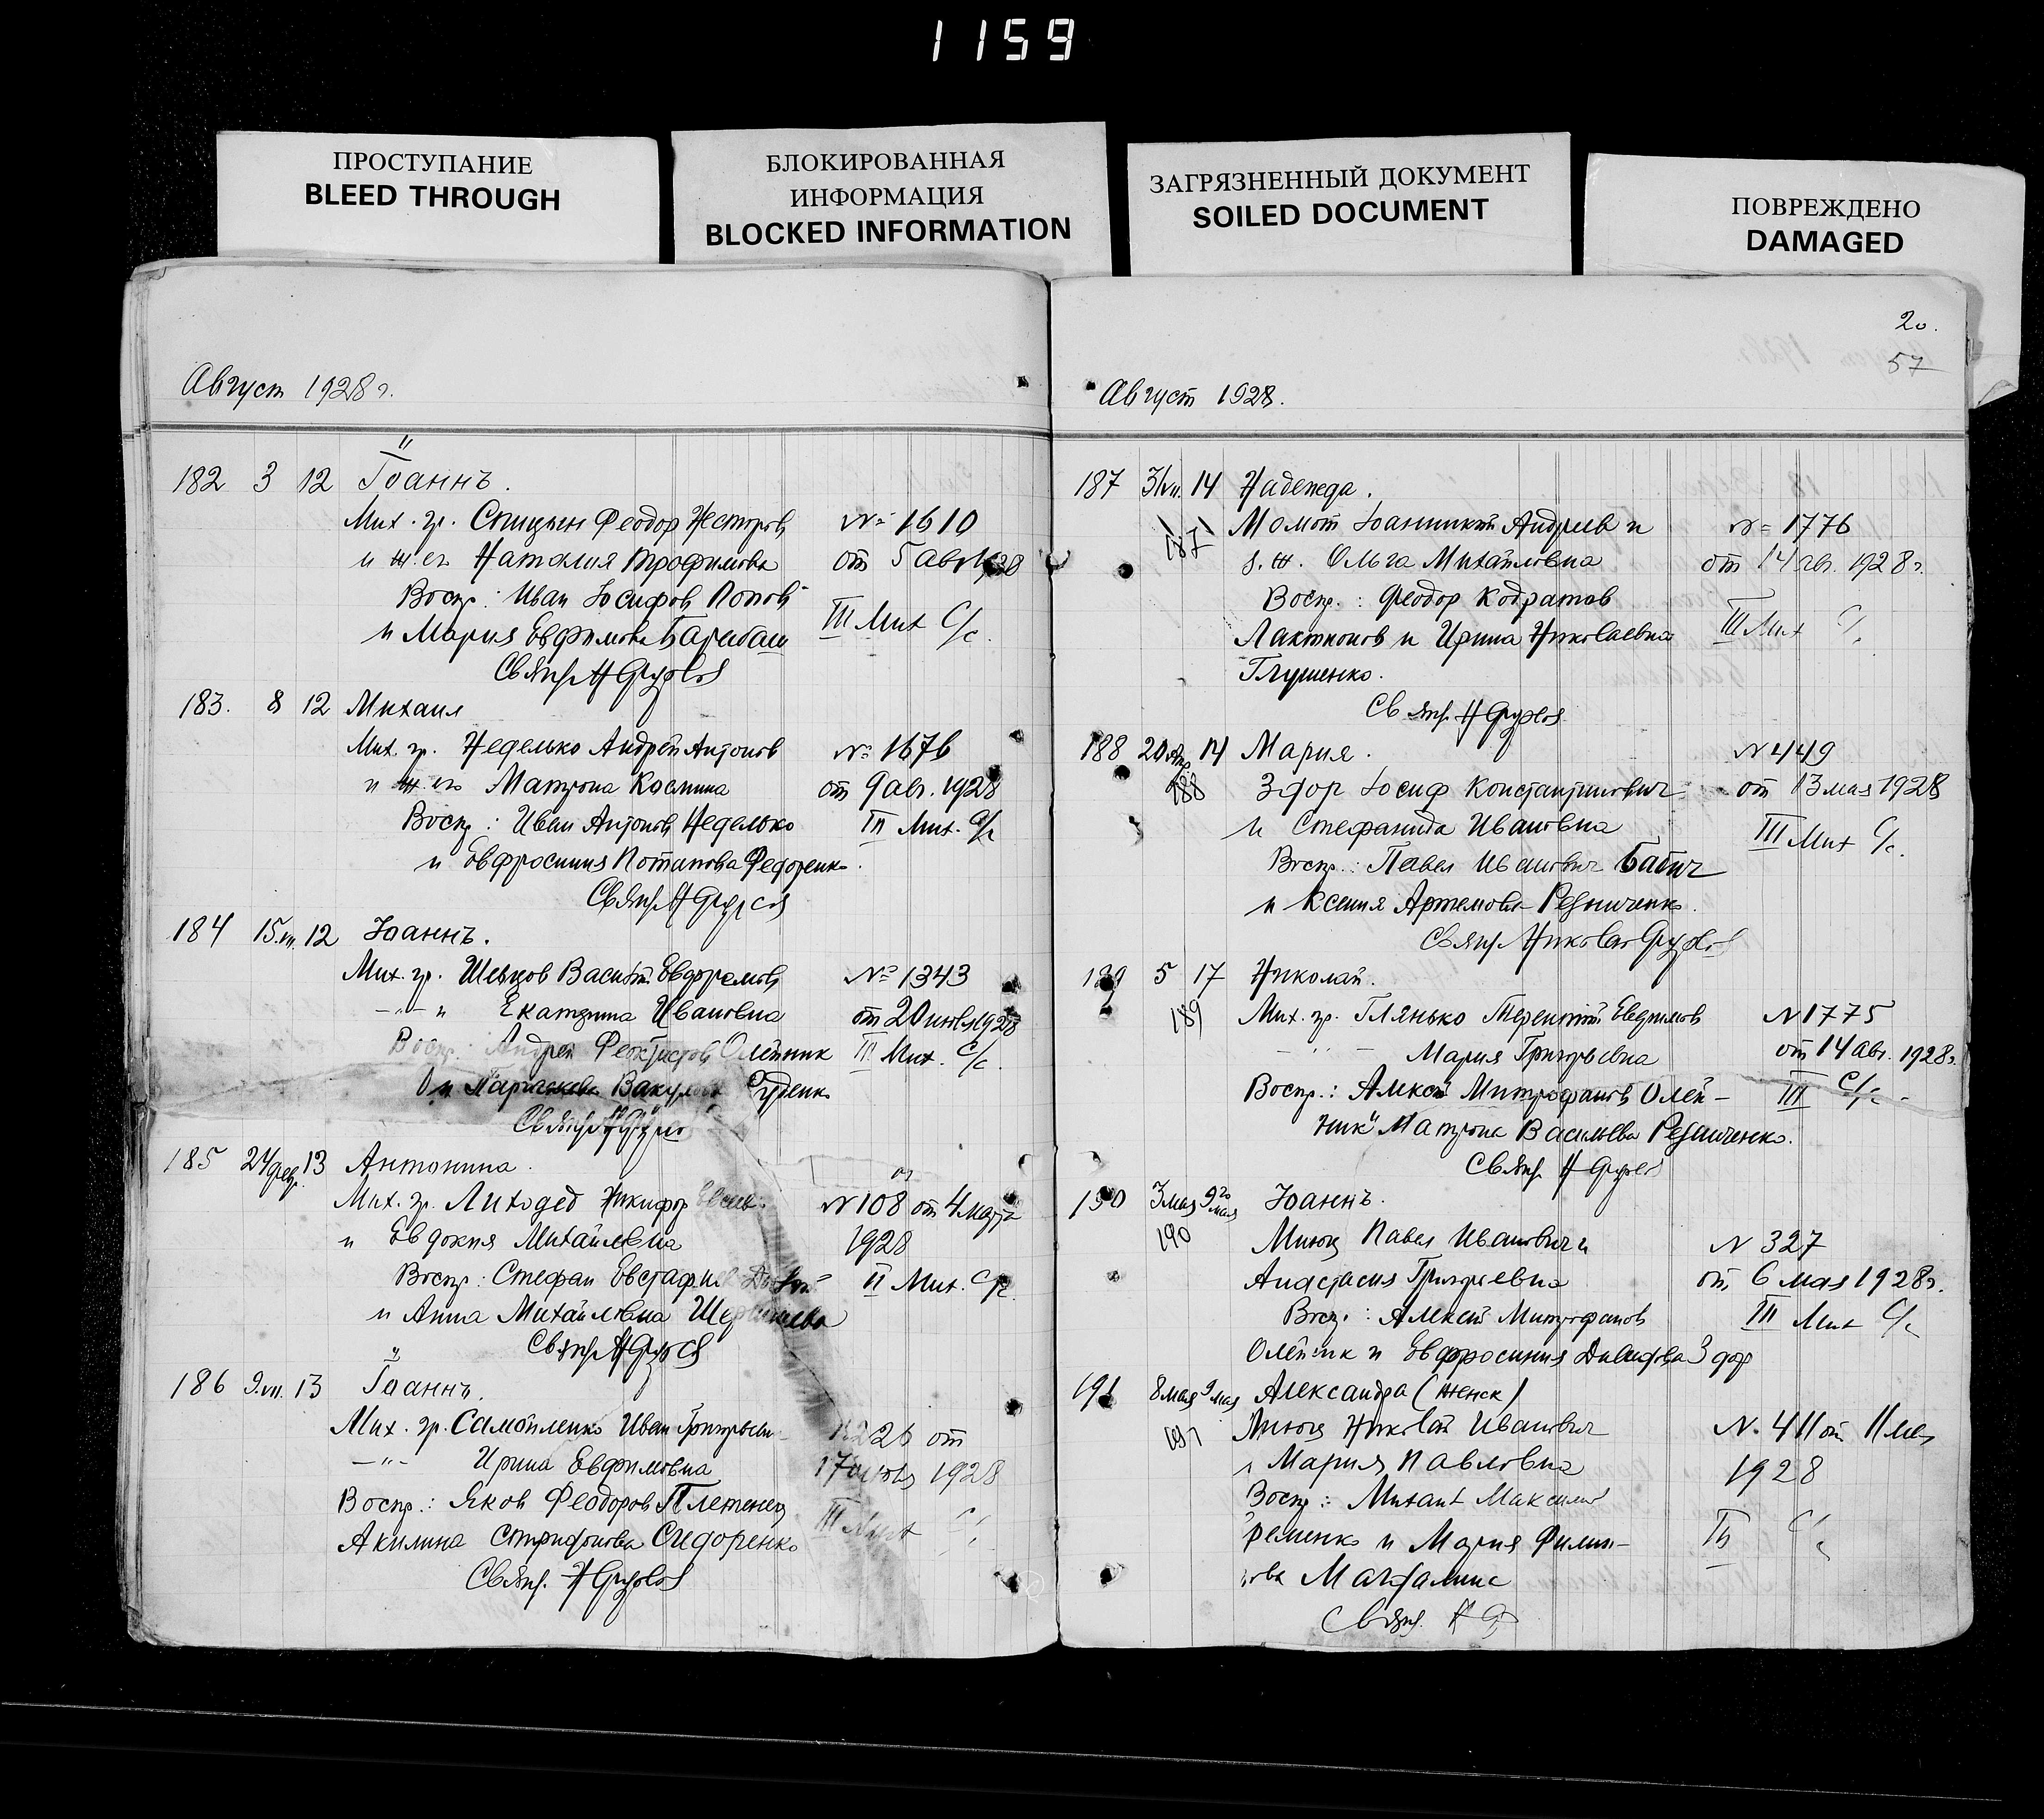 1159
ПРОСТУПАНИЕ
BLEED THROUGH
БЛОКИРОВАННАЯ
ИНФОРМАЦИЯ
BLOCKED INFORMATION
ЗАГРЯЗНЕННЫЙ ДОКУМЕНТ
SOILED DOCUMENT
ПОВРЕЖДЕНО
DAMAGED
Август 1928 г.
182 3 12 Іоаннъ.
Мих. гр. Спицын Феодор Несторов № 1610
и ж. его Наталия Трофимова от 5 авг 1928
Воспр: Иван Іосифов Попов III Мих С/с.
и Мария Евфимова Барабаш
Свящ. Н
183. 8 12 Михаил
Мих. гр. Неделько Андрей Антонов № 1676
и ж. его Матрона Космина от 9 авг. 1928
Воспр: Иван Антонов Неделько III Мих. С/с
и Евфросиния Потапова Федоренко.
Свящ. Н
184 15.VII. 12 Іоаннъ.
Мих. гр. Шевцов Василий Евфремов № 1343
-"- " Екатерина Ивановна от 20 июля 1928
Воспр: Андрей Феоктистов Олейник III Мих. С/с.
и Параскева Вакулова Руденко
Свящ. Н
185 24 февр. 13 Антонина.
Мих. гр. Лиходед Никифор № 108 от 4 марта
и Евдокия Михайловна 1928
Воспр: Стефан Евстафиев II Мих. С/с.
и Анна Михайловна
Свящ. Н
186 9.VII. 13 Іоаннъ.
Мих. гр. Самойленко Иван Григорьевич 1226 от
-"- Ирина Евфимовна 17 июля 1928
Воспр.: Яков Феодоров Плетенец III Мих С/с
Акилина Сидоренко
Свящ. Н
20.
57
Август 1928.
187 31/VII. 14 Надежда.
187 Момот Іоанникий Андреев и № 1776
з. ж. Ольга Михайловна от 14 авг. 1928 г.
Воспр.: Феодор Кодратов III Мих С/с
Лактионов и Ирина Николаевна
Глущенко.
Свящ. Н
188 20 апр. 14 Мария. № 449
188 Здор Іосиф Константинович от 13 мая 1928
и Стефанида Ивановна III Мих С/с.
Воспр.: Павел Иванович Бабич
и Ксения Артемовна Резниченко.
Свящ. Николай
189 5 17 Николай.
189 Мих. гр. Глянько Терентий Евфимов № 1775
- " - Мария Григорьевна от 14 авг. 1928 г.
Воспр.: Алексей Митрофанов Олей- III С/с -
ник и Матрона Васильева Резниченко.
Свящ. Н
190 3 мая 9го мая Іоаннъ.
190 Павел Иванович и № 327
Анастасия Григорьевна от 6 мая 1928 г.
Воспр.: Алексей Митрофанов III Мих С/с
Олейник и Евфросиния Давидова Здор
191 8 мая 9 мая Александра (женск)
191 Николай Иванович № 411 от 11 мая
и Мария Павловна 1928
Воспр: Михаил Максимов
и Мария Филип- III С/с
ова
Свящ. Н